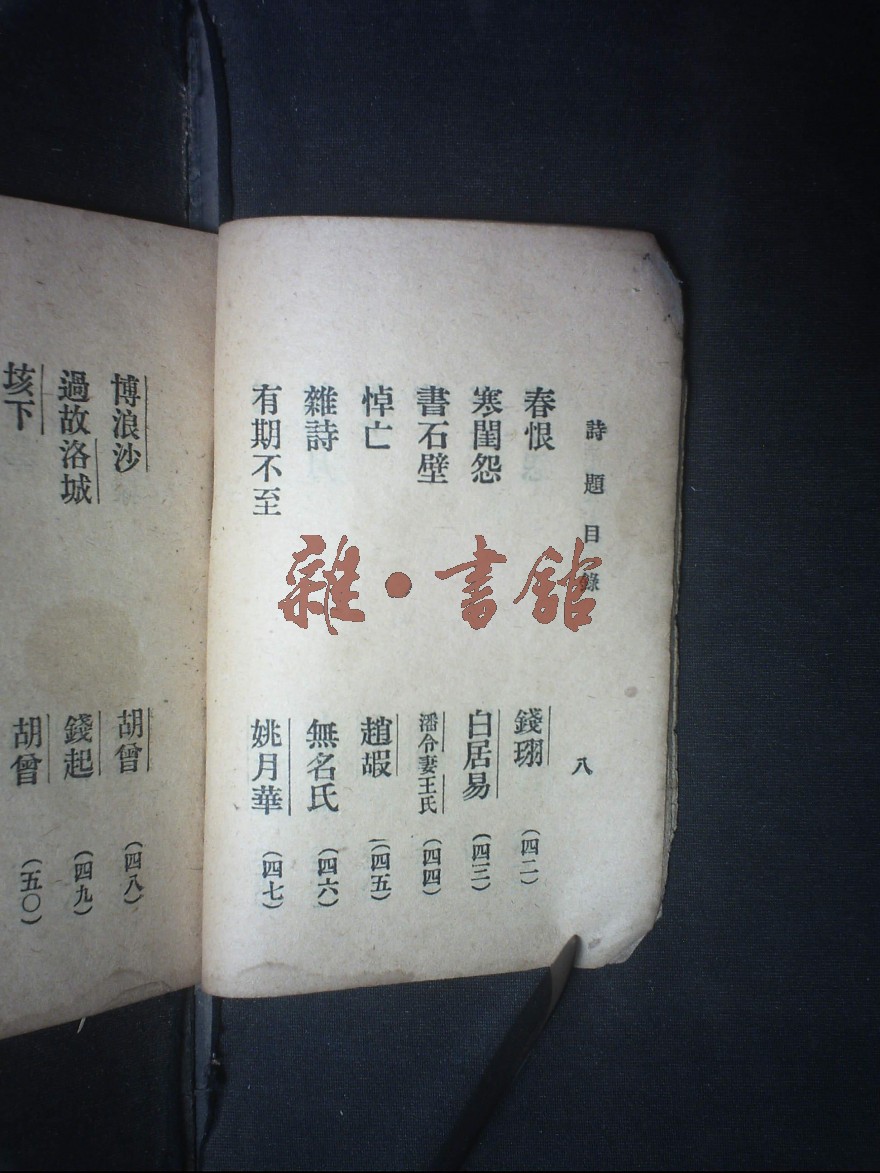 詩題目錄 八
春恨 錢珝 (四二)
寒閨怨 白居易 (四三)
書石壁 潘令妻王氏 (四四)
悼亡 趙嘏 (四五)
雜詩 無名氏 (四六)
有期不至 姚月華 (四七)
博浪沙 胡曾 (四八)
過故洛城 錢起 (四九)
垓下 胡曾 (五〇)
雜·書館